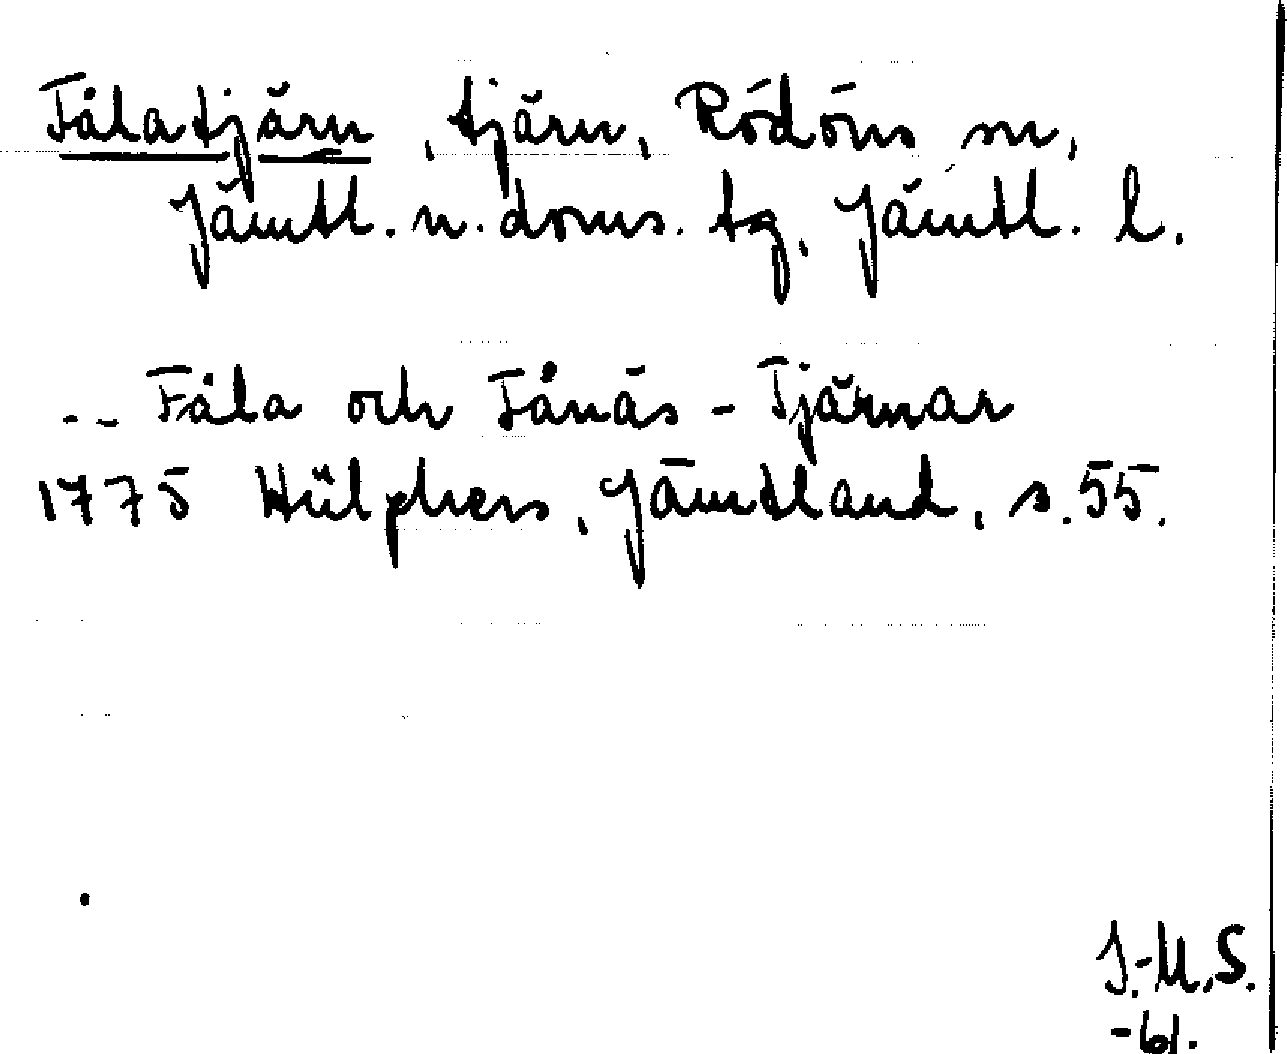 Fålatjärn, tjärn, Rödöns sn,
Jämtl. n. doms. tg, Jämtl. l.
-- Fåla och Fånäs - Tjärnar
1775 Hülphers, Jämtland, s. 55.
J.-U.S.
-61.